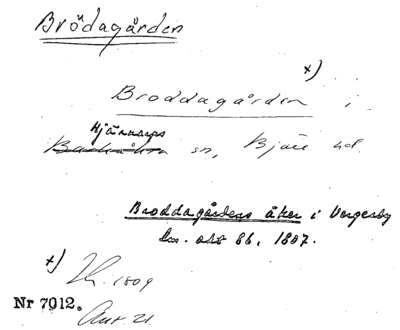 Brödagården
x)
Broddagården i
Hjärnarps
sn, Bjäre hd.
Broddagårdens åker i Vergesby
lm. akt 86, 1807.
x)
1809
Nr 7012.